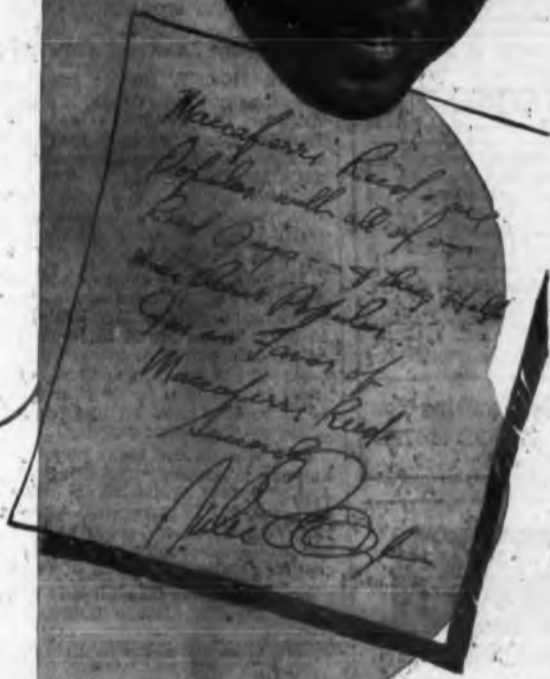 Maccaferri Reeds are
Popular with all of our
Reed Guys – if they Help
Popular
I'm in Favor of
Maccaferri Reeds
Sincerely